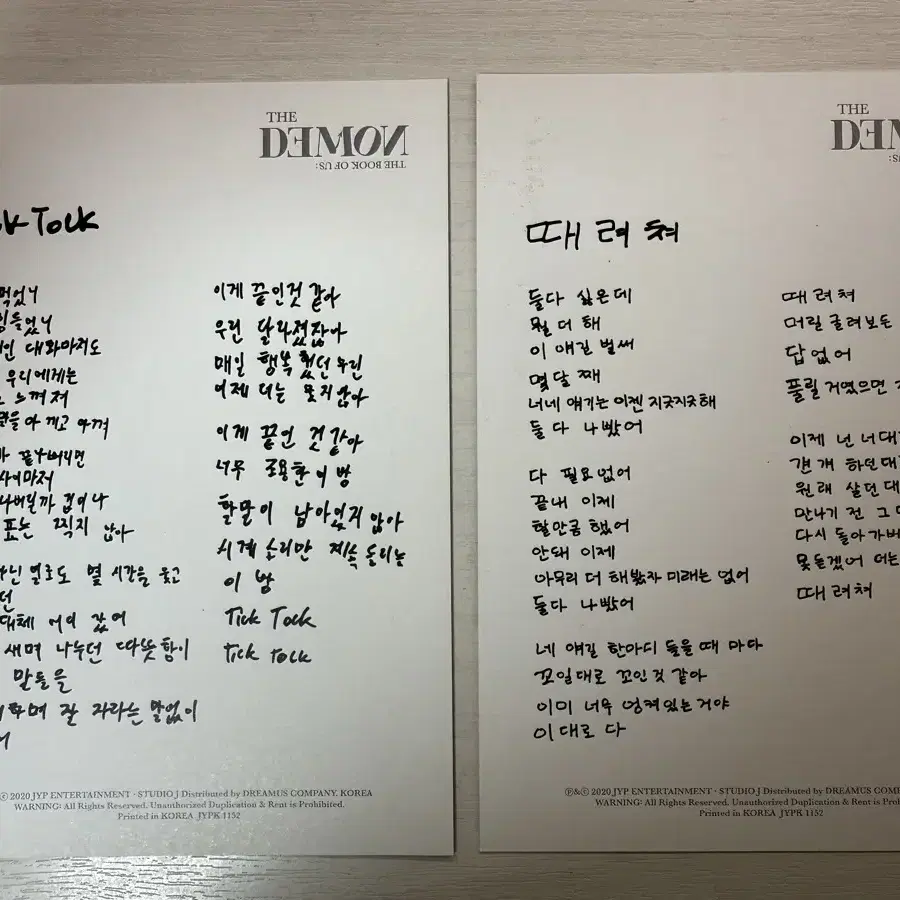 THE
DEMON
THE BOOK OF US:
Tock
먹었니
힘들었니
대화마저도
우리에게는
느껴져
아끼고 아껴
끝나버리면
나버릴까 겁이나
표는 찍지 않아
별로도 몇 시간을 웃고
대체 어디 갔어
새며 나누던 따뜻함이
말들을
하며 잘 자라는 말없이
이게 끝인것 같아
우린 달라졌잖아
매일 행복했던 우린
어제 더는 못지않아
이게 끝인 것 같아
너무 조용한 이 방
할말이 남아있지 않아
시계 소리만 계속 들리는
이 밤
Tick Tock
Tick Tock
℗&© 2020 JYP ENTERTAINMENT · STUDIO J Distributed by DREAMUS COMPANY. KOREA
WARNING: All Rights Reserved. Unauthorized Duplication & Rent is Prohibited.
Printed in KOREA JYPK 1152
THE
때려쳐
둘다 싫은데
뭘 더 해
이 얘길 벌써
몇 달 째
너네 얘기는 이젠 지긋지긋해
둘 다 나빴어
다 필요없어
끝내 이제
할만큼 했어
안돼 이제
아무리 더 해봤자 미래는 없어
둘다 나빴어
네 얘길 한마디 들을 때 마다
꼬일대로 꼬인것 같아
이미 너무 엉켜있는거야
이대로 다
때려쳐
머릴 굴려보든
답없어
풀릴 거였으면
이제 넌 너대
걘 걔 하던대
원래 살던대
만나기 전 그
다시 돌아가
못듣겠어 더는
때려쳐
℗&© 2020 JYP ENTERTAINMENT · STUDIO J Distributed by DREAMUS COM
WARNING: All Rights Reserved. Unauthorized Duplication & Rent is Proh
Printed in KOREA JYPK 1152